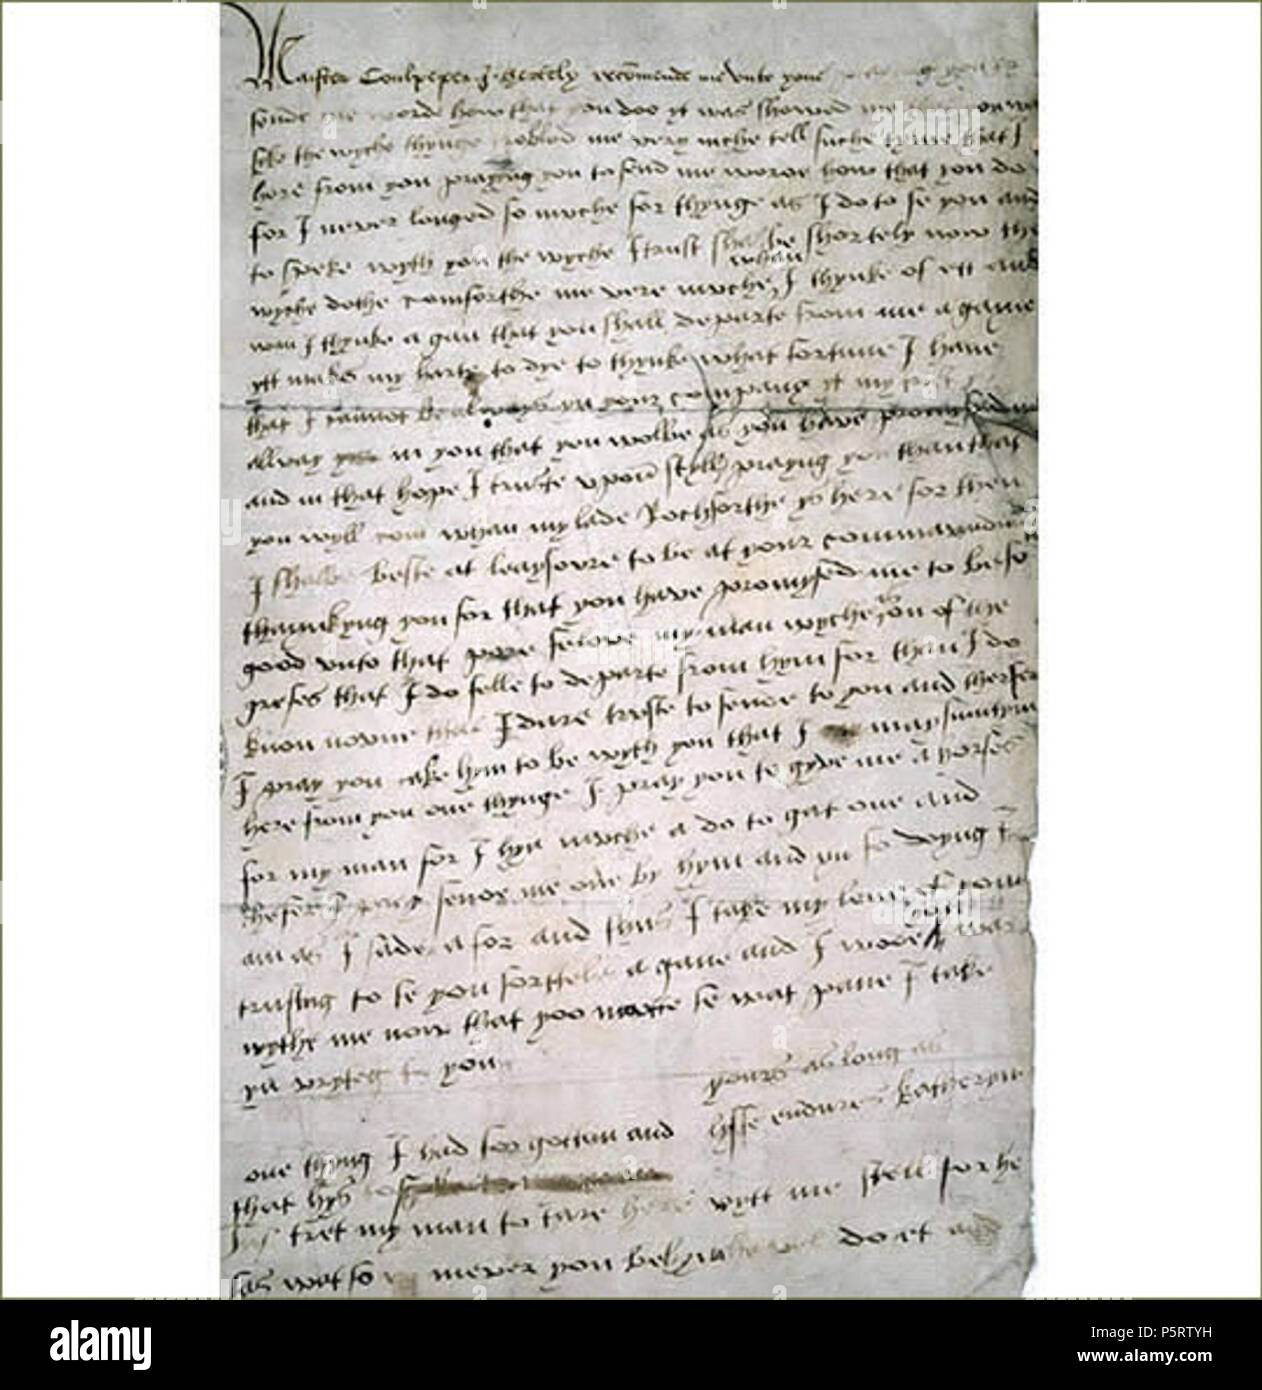 Maister Coulpeper I hertely recomende me unto youe praying you to
sende me worde how that you doo yt was showed me that you was
seke the wyche thynge trobled me very muche tell suche tyme that I
here from you praying you to send me worde how that you do
for I never longed so muche for thynge as I do to se you and
to speke wyth you the wyche I trust shal be shortely now the
wyche dothe comforthe me very muche whan I thynke of ett and
wan I thynke a gan that you shall departe from me a gayne
ytt makes my harte to dye to thynke what fortune I have
that I cannot be always yn your company yt my trust ys
allway in you that you wolbe as you have promysed me
and in that hope I truste upon styll prayng you than that
you wyll com whan my lade Rochforthe ys here for then
I shalbe beste at leaysoure to be at your commandment
thaynkyng you for that you have promysed me to be so
good unto that pore felowe my man wyche ys on of the
grefes that I do felle to departe from hym for than I do
know noone that I dare truste to sende to you and therfor
I pray you take hym to be wyth you that I may sumtym
here from you one thynge I pray you to gyve me a horse
for my man for I hyd muche a do to gat one and
thefer I pray sende me one by hym and yn so doying I
am as I sade afor and thus I take my leve of you
trusting to se you shorttele a gane and I wode you war
wythe me now that yoo maitte se wat pane I take
yn wryteg to you
yours as long as
lyffe endures
Katheryn
one thyng I had forgotten and
that hys to
my man to tare here wytt me stell for he
sas wat so mever you
do et and